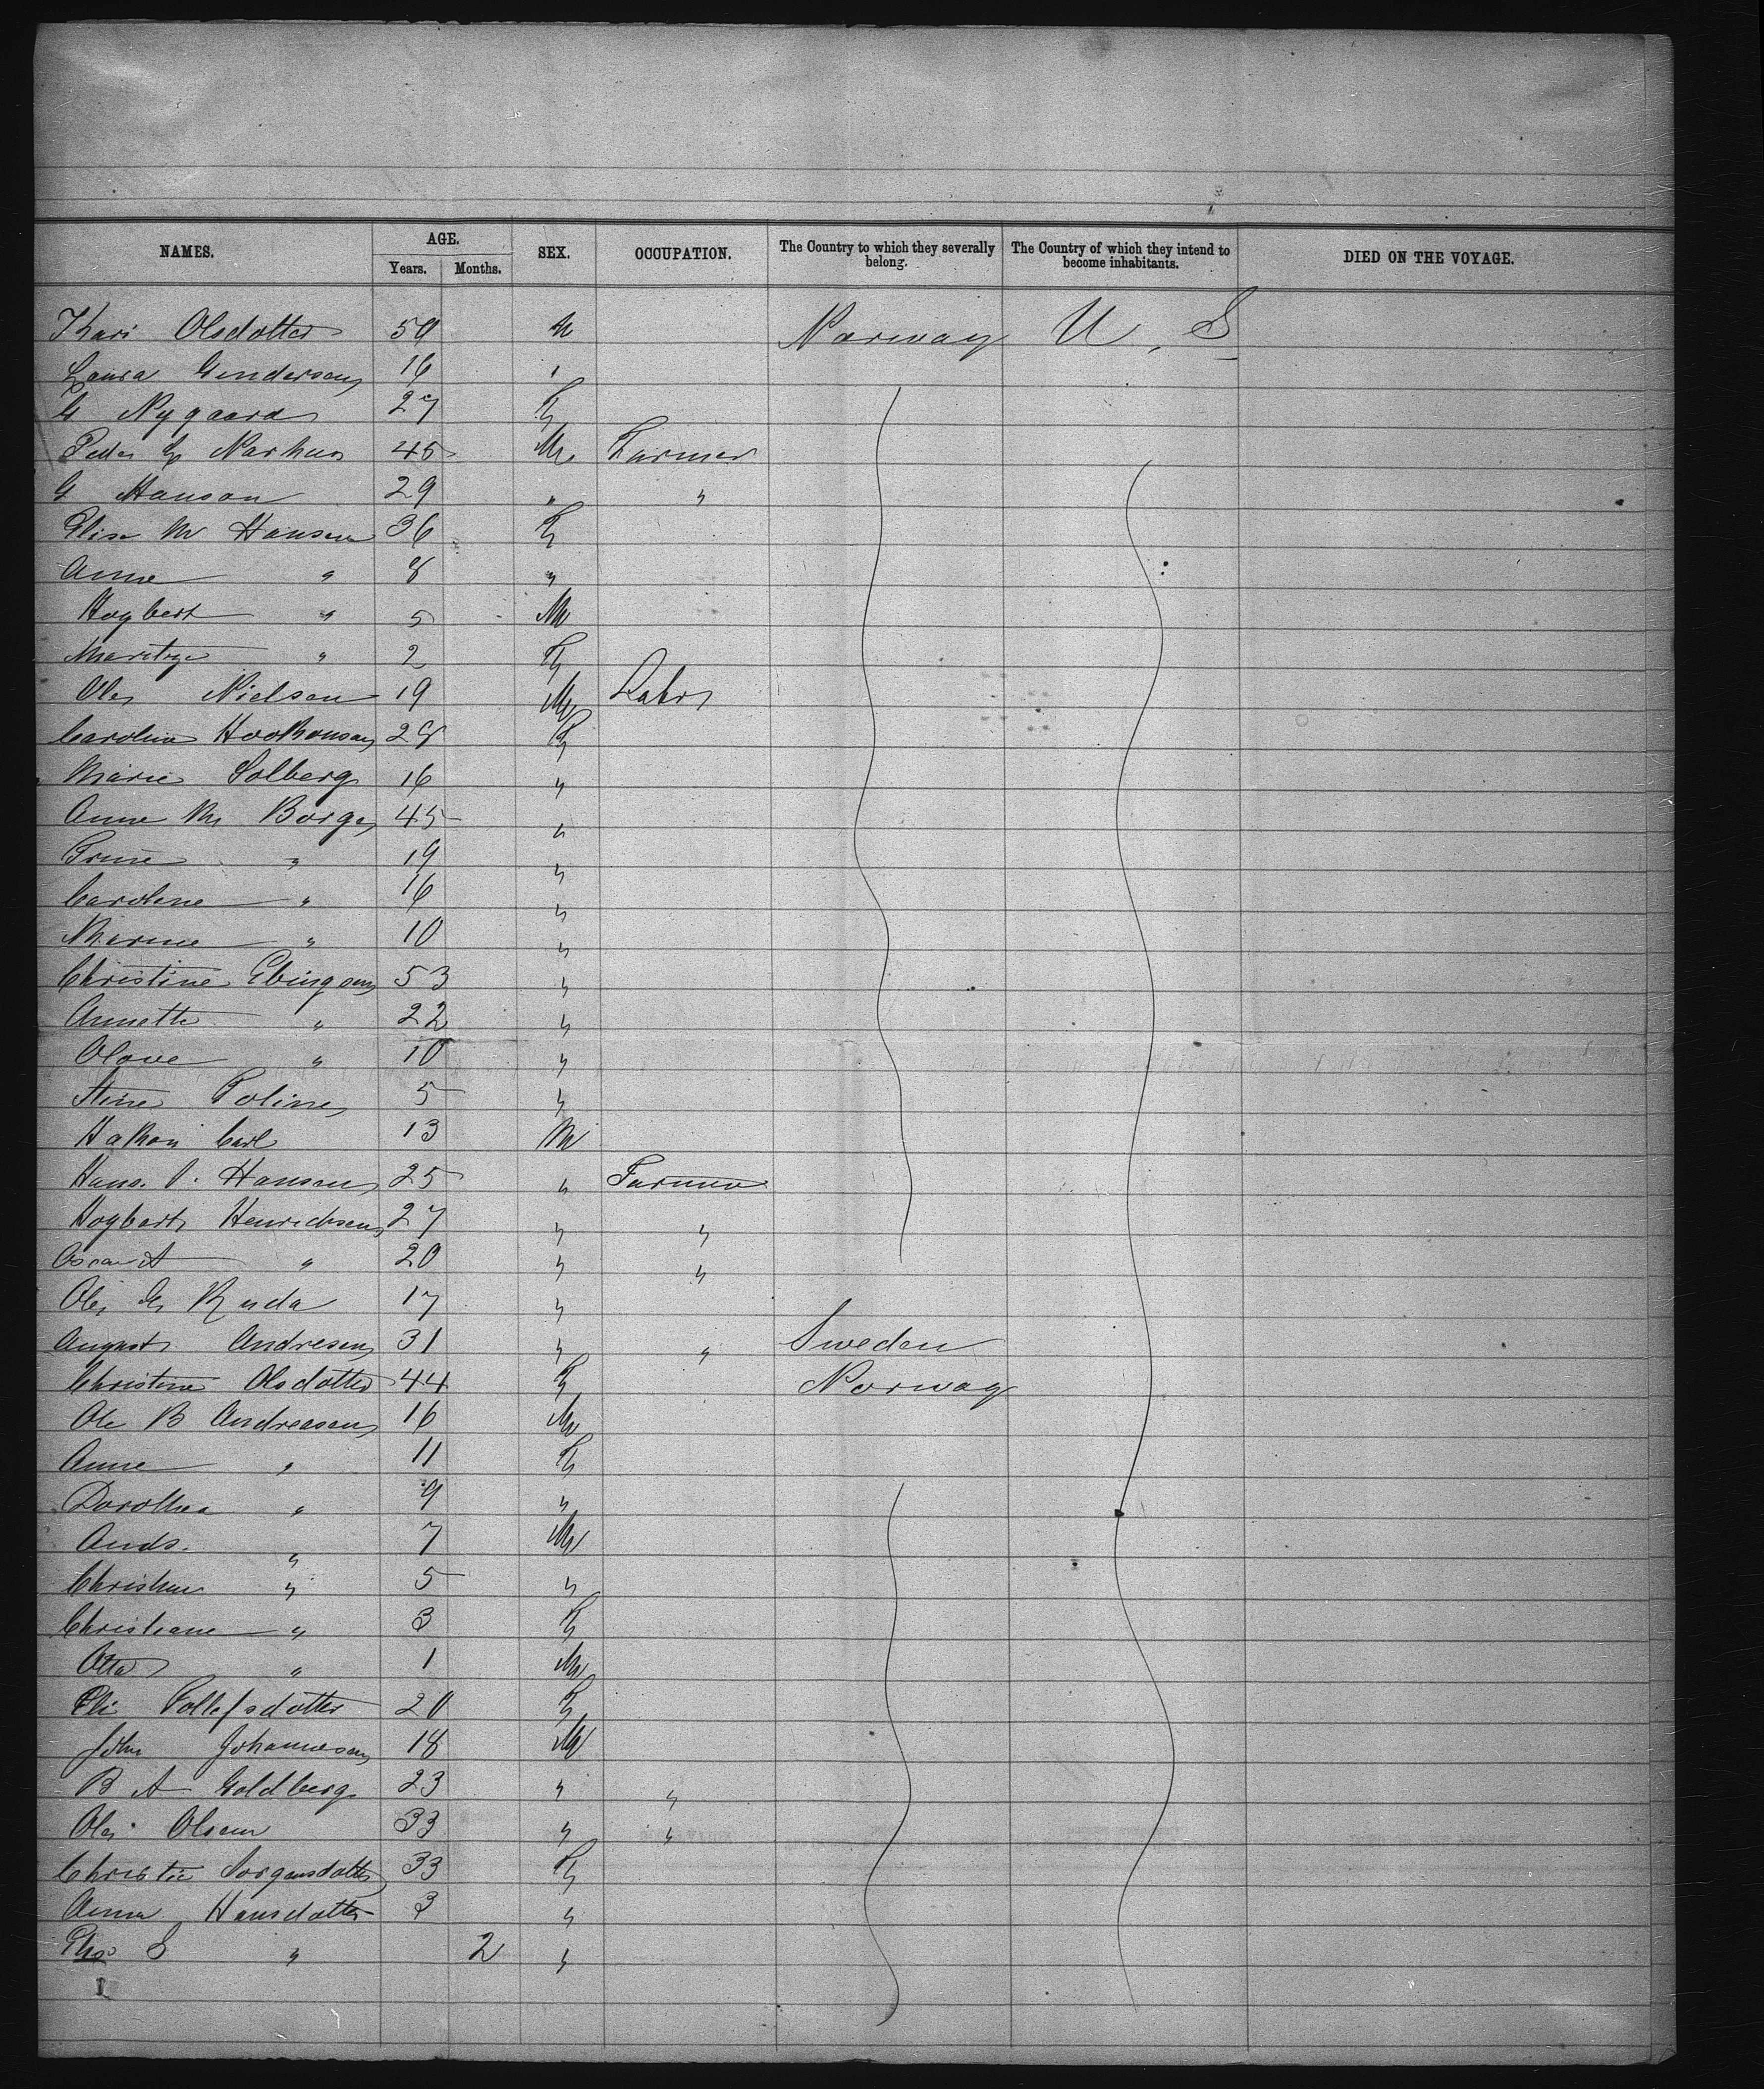 NAMES. AGE. SEX. OCCUPATION. The Country to which they severally belong. The Country of which they intend to become inhabitants. DIED ON THE VOYAGE.
Years. Months.
Kari Olsdotter 59 Norway U. S
Laura Gundersen 16
G Nygaard 27 F
Peder G Narhus 45 M Farmer
G Hanson 29 " "
Elise M Hansen 36 F
Anne " 8 "
Hogbert " 5 M
" 2 F
Ole Nielsen 19 M Labr
Caroline Hookonsen 28 F
Marie Solberg 16 "
Anne M Borge 45 "
" 19 "
Caroline " 16 "
" 10 "
Christine 53 "
Annette " 22 "
Olave " 10 "
Stine Poline 5 "
Hakon Carl 13 M
Hans. P. Hansen 25 " Farmer
Hogbert Henrichsen 27 " "
Oscar A " 20 " "
Ole G Ruda 17 "
August Andresen 31 " " Sweden
Christine Olsdotter 44 F Norway
Ole B Andreasen 16 M
Anne " 11 F
Dorothea " 9 "
Ands. " 7 M
Christian " 5 "
Christiane " 3 F
Otto " 1 M
Eli Tollefsdotter 20 F
John Johannesen 18 M
B A Goldberg 23 " "
Ole Olsen 33 " "
Christie 33 F
Anna Hansdotter 3 "
S " 2 "